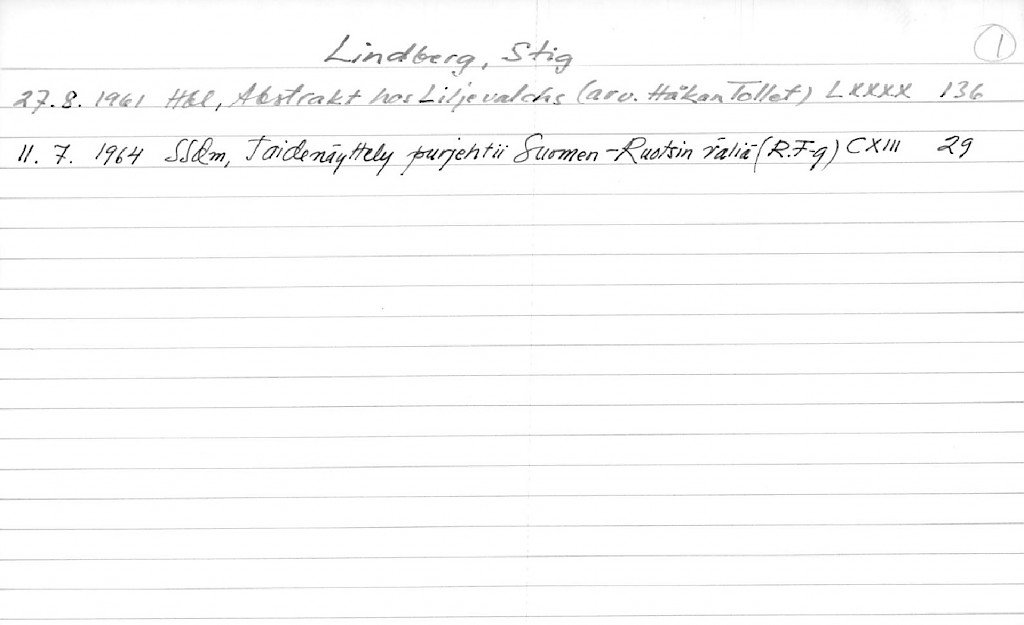 Lindberg, Stig
1
27.8. 1961 Hbl, Abstrakt hos Liljevalchs (arv. Håkan Tollet) LXXXX 136
11. 7. 1964 SSdm, Taidenäyttely purjehtii Suomen-Ruotsin väliä (R.F-g) CXIII 29